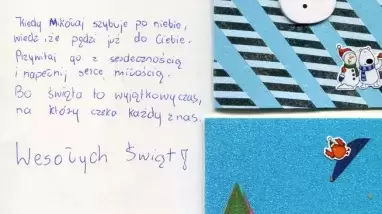 Kiedy Mikołaj szybuje po niebie,
wiedz, że pędzi już do Ciebie.
Przywitaj go z serdecznością
i napełnij serce miłością.
Bo święta to wyjątkowy czas,
na który czeka każdy z nas.
Wesołych Świąt!